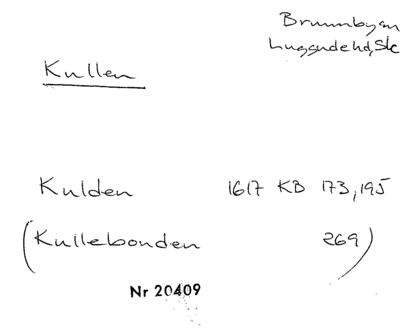 Brunnbyan
Luggudehd, Sk
Kullen
Kulden 1617 KB 173, 195
(Kullebonden 269)
Nr 20409